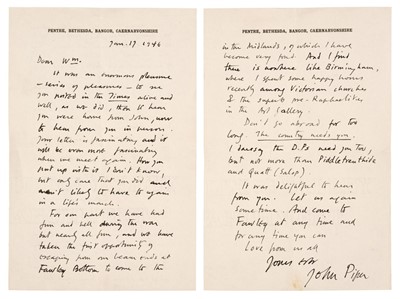 PENTRE, BETHESDA, BANGOR, CAERNARVONSHIRE
Jan. 17 1946
Dear Wm.
It was an enormous pleasure
— series of pleasures — to see
you noted in the Times alive and
well, as we did, then to hear
you were home from John, now
to hear from you in person.
Your letter is fascinating and it
will be even more fascinating
when we meet again. How you
put up with it I don't know,
but only care that you did and
aren't likely to have to again
in a life's march.
For our part we have had
fun and hell during the war
but nearly all fun, and we have
taken the first opportunity of
escaping from our beam ends at
Fawley Bottom to come to the
PENTRE, BETHESDA, BANGOR, CAERNARVONSHIRE
in the Midlands, of which I have
become very fond. And I find
there is nowhere like Birmingham,
where I spent some happy hours
recently among Victorian churches
& the superb pre-Raphaelites
in the Art Gallery.
Don't go abroad for too
long. The country needs you.
I daresay the D.Ps need you too,
but not more than Piddletrenthide
and Quatt (Salop).
It was delightful to hear
from you. Let us again
some time. And come to
Fawley at any time and
for any time you can
Love from us all
Yours ever
John Piper